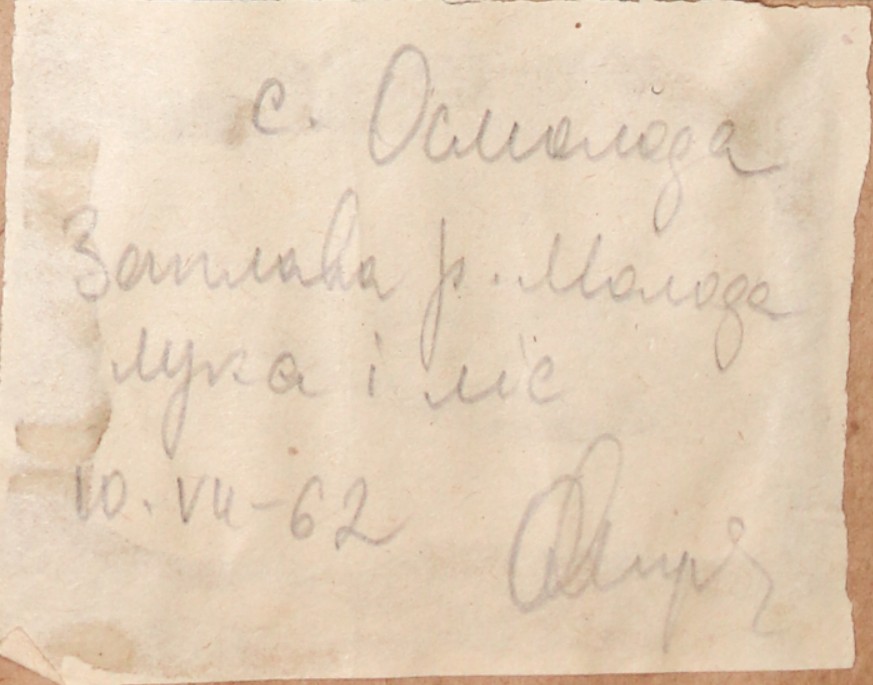 с. Осмолода
Заплава р. Молода
лука і ліс
10. VII-62